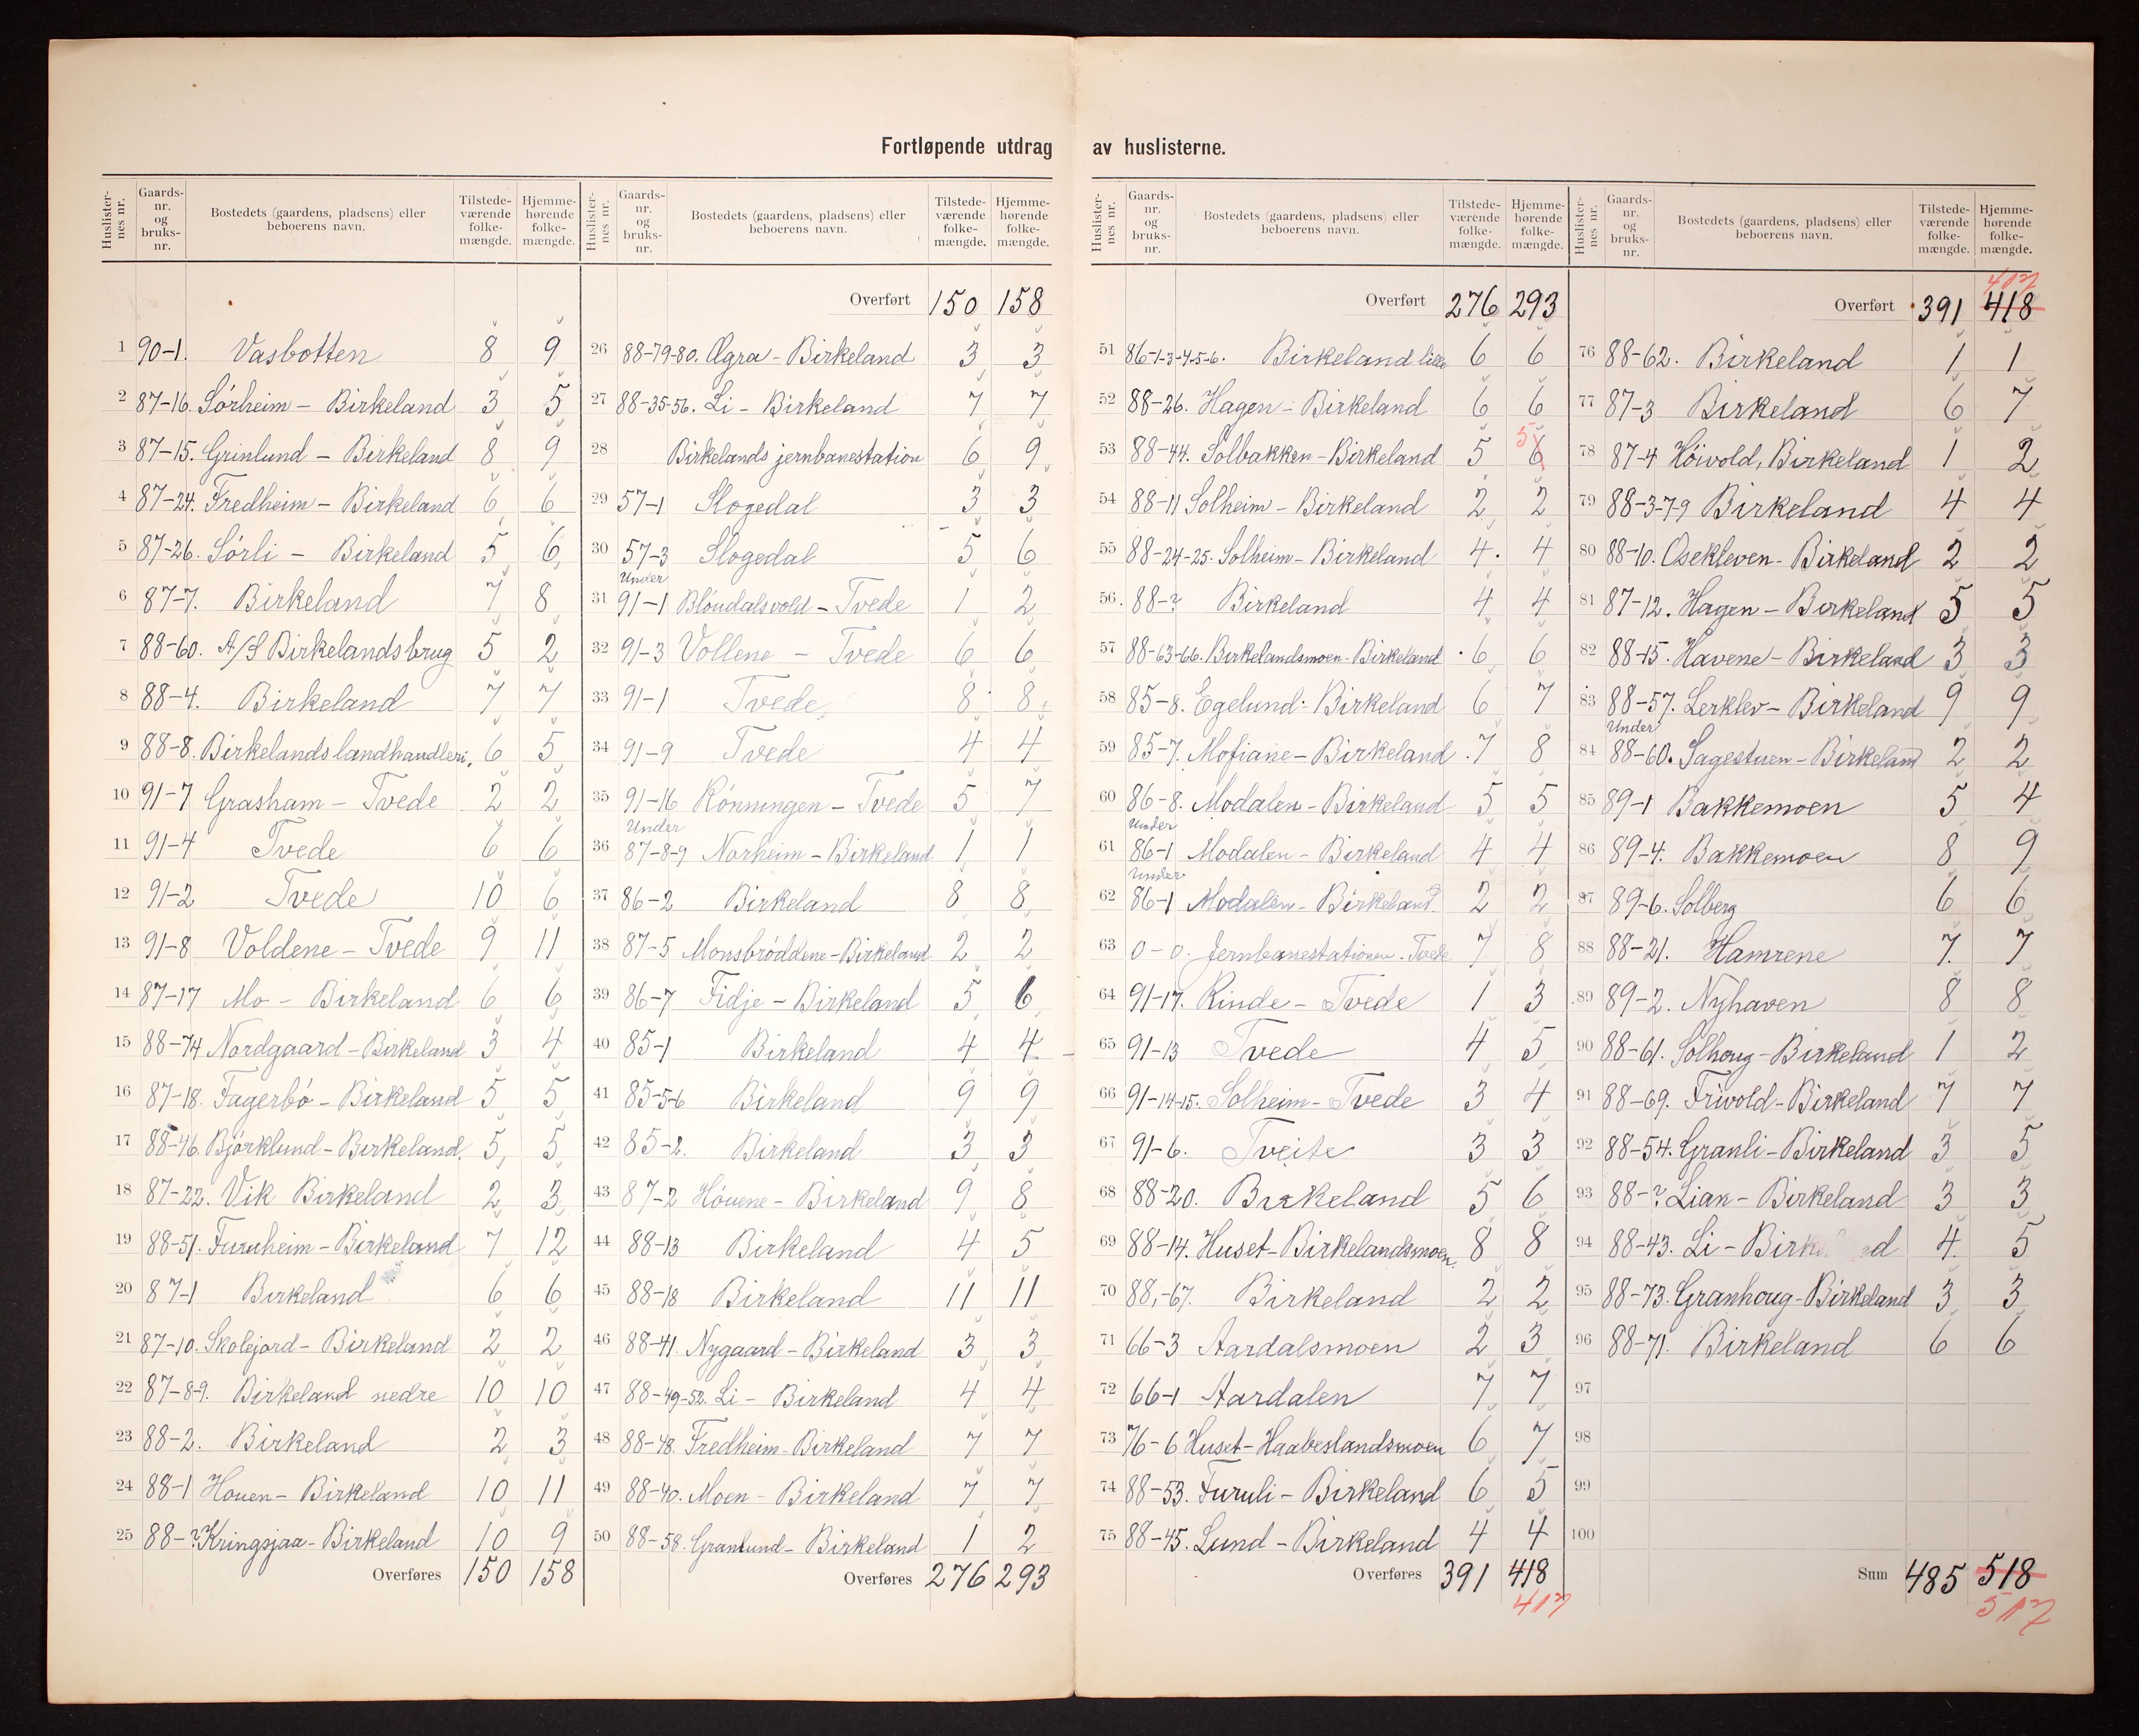 Fortløpende utdrag av huslisterne.
Huslister-nes nr. Gaards-nr. og bruks-nr. Bostedets (gaardens, pladsens) eller beboerens navn. Tilstede-værende folke-mængde. Hjemme-hørende folke-mængde.
1 90-1. Vasbotten 8 9
2 87-16. Sørheim - Birkeland 3 5
3 87-15. Grinlund - Birkeland 8 9
4 87-24. Fredheim - Birkeland 6 6
5 87-26. Sørli - Birkeland 5 6
6 87-7. Birkeland 7 8
7 88-60. A/S Birkelandsbrug 5 2
8 88-4. Birkeland 7 7
9 88-8. Birkelands landhandleri. 6 5
10 91-7 Grasham - Tvede 2 2
11 91-4 Tvede 6 6
12 91-2 Tvede 10 6
13 91-8 Voldene - Tvede 9 11
14 87-17 Mo - Birkeland 6 6
15 88-74 Nordgaard - Birkeland 3 4
16 87-18. Fagerbø - Birkeland 5 5
17 88-46. Bjørklund - Birkeland. 5 5
18 87-22. Vik Birkeland 2 3
19 88-51. Furuheim - Birkeland 7 12
20 87-1 Birkeland 6 6
21 87-10. Skolejord - Birkeland 2 2
22 87-8-9. Birkeland nedre 10 10
23 88-2. Birkeland 2 3
24 88-1 Houen - Birkeland 10 11
25 88-? Kringsjaa - Birkeland 10 9
Overføres 150 158
Huslister-nes nr. Gaards-nr. og bruks-nr. Bostedets (gaardens, pladsens) eller beboerens navn. Tilstede-værende folke-mængde. Hjemme-hørende folke-mængde.
Overført 150 158
26 88-79-80. Agra - Birkeland 3 3
27 88-35-56. Li - Birkeland 7 7
28 Birkelands jernbanestation 6 9
29 57-1 Slogedal 3 3
30 57-3 Slogedal 5 6
Under
31 91-1 Bløudalsvold - Tvede 1 2
32 91-3 Vollene - Tvede 6 6
33 91-1 Tvede 8 8
34 91-9 Tvede 4 4
35 91-16 Rønningen - Tvede 5 7
Under
36 87-8-9 Norheim - Birkeland 1 1
37 86-2 Birkeland 8 8
38 87-5 Monsbrøddene - Birkeland 2 2
39 86-7 Fidje - Birkeland 5 6
40 85-1 Birkeland 4 4
41 85-5-6 Birkeland 9 9
42 85-2. Birkeland 3 3
43 87-2 Høuene - Birkeland 9 8
44 88-13 Birkeland 4 5
45 88-18 Birkeland 11 11
46 88-41. Nygaard - Birkeland 3 3
47 88-49-52. Li - Birkeland 4 4
48 88-48. Fredheim - Birkeland 7 7
49 88-40. Moen - Birkeland 7 7
50 88-58. Granlund - Birkeland 1 2
Overføres 276 293
Huslister-nes nr. Gaards-nr. og bruks-nr. Bostedets (gaardens, pladsens) eller beboerens navn. Tilstede-værende folke-mængde. Hjemme-hørende folke-mængde.
Overført 276 293
51 86-1-3-4-5-6. Birkeland lille 6 6
52 88-26. Hagen - Birkeland 6 6
53 88-44. Solbakken - Birkeland 5 5 6
54 88-11 Solheim - Birkeland 2 2
55 88-24-25. Solheim - Birkeland 4. 4
56. 88-? Birkeland 4 4
57 88-63-66. Birkelandsmoen - Birkeland 6 6
58 85-8. Egelund - Birkeland 6 7
59 85-7. Mofiane - Birkeland 7 8
60 86-8. Modalen - Birkeland 5 5
Under
61 86-1 Modalen - Birkeland 4 4
Under
62 86-1 Modalen - Birkeland. 2 2
63 0-0. Jernbanestationen. Tvede 7 8
64 91-17. Rinde - Tvede 1 3
65 91-13 Tvede 4 5
66 91-14-15. Solheim - Tvede 3 4
67 91-6. Tveite 3 3
68 88-20. Birkeland 5 6
69 88-14. Huset - Birkelandsmoen 8 8
70 88,-67. Birkeland 2 2
71 66-3 Aardalsmoen 2 3
72 66-1 Aardalen 7 7
73 76-6 Huset - Haabeslandsmoen 6 7
74 88-53. Furuli - Birkeland 6 5
75 88-45. Lund - Birkeland 4 4
Overføres 391 418
417
Huslister-nes nr. Gaards-nr. og bruks-nr. Bostedets (gaardens, pladsens) eller beboerens navn. Tilstede-værende folke-mængde. Hjemme-hørende folke-mængde.
417
Overført 391 418
76 88-62. Birkeland 1 1
77 87-3 Birkeland 6 7
78 87-4 Høivold, Birkeland 1 2
79 88-3-7-9 Birkeland 4 4
80 88-10. Osekleven - Birkeland 2 2
81 87-12. Hagen - Birkeland 5 5
82 88-15. Havene - Birkeland 3 3
83 88-57. Lerklev - Birkeland 9 9
Under
84 88-60. Sagestuen - Birkeland 2 2
85 89-1 Bakkemoen 5 4
86 89-4. Bakkemoen 8 9
87 89-6. Solberg 6 6
88 88-21. Hamrene 7. 7
89 89-2. Nyhaven 8 8
90 88-61. Solhoug - Birkeland 1 2
91 88-69. Frivold - Birkeland 7 7
92 88-54. Granli - Birkeland 3 5
93 88-? Lian - Birkeland 3 3
94 88-43. Li - Birk nd 4 5
95 88-73. Granhoug - Birkeland 3 3
96 88-71. Birkeland 6 6
97
98
99
100
Sum 485 518
517